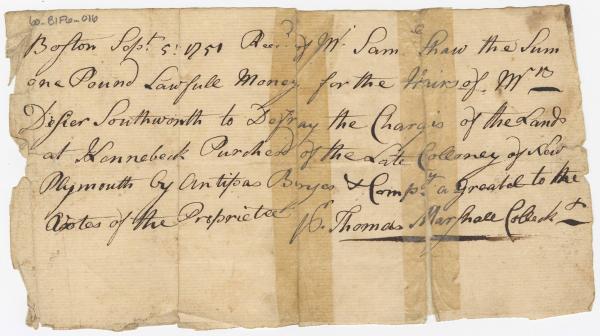 60-81F6-016
Boston Sept. 5: 1751 Recd. of Mr. Sam Shaw the Sum
one Pound Lawfull Money for the Heirs of Mrs
Desier Southworth to Defray the Chargis of the Lands
at Kennebeck Purched of the Late Colloney of New
Plymouth by Antipas Boyes & Compy. a Greabel to the
Votes of the Proprietee
Pr. Thomas Marshall Colleckt